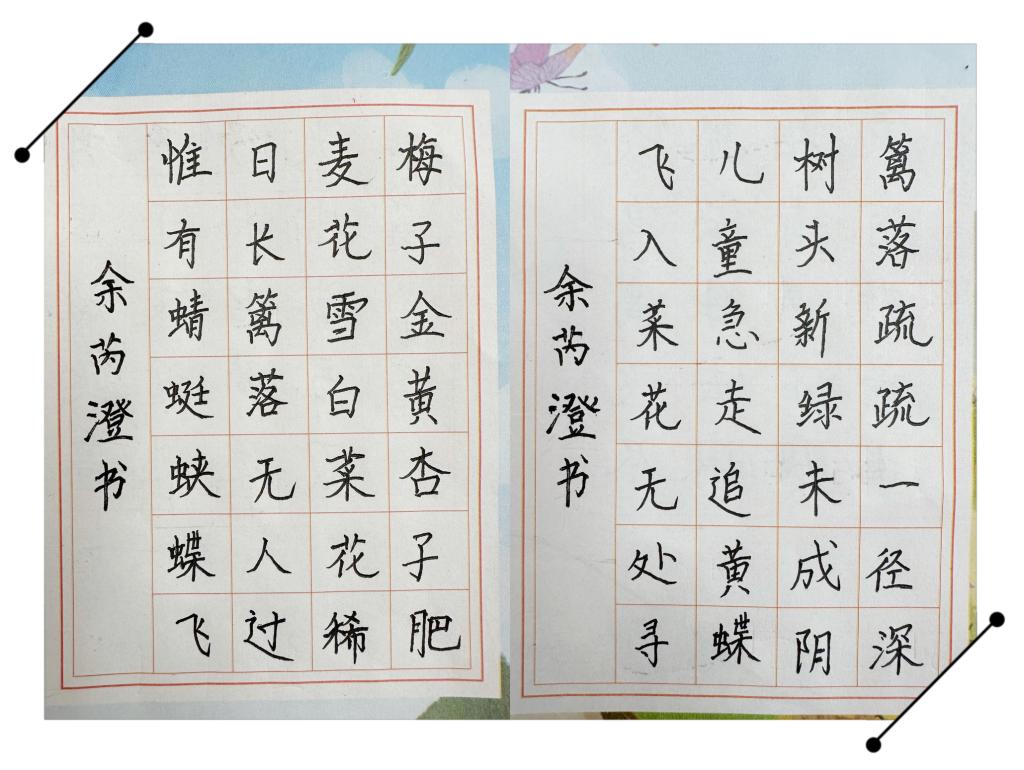 梅子金黄杏子肥
麦花雪白菜花稀
日长篱落无人过
惟有蜻蜓蛱蝶飞
余芮澄书
篱落疏疏一径深
树头新绿未成阴
儿童急走追黄蝶
飞入菜花无处寻
余芮澄书